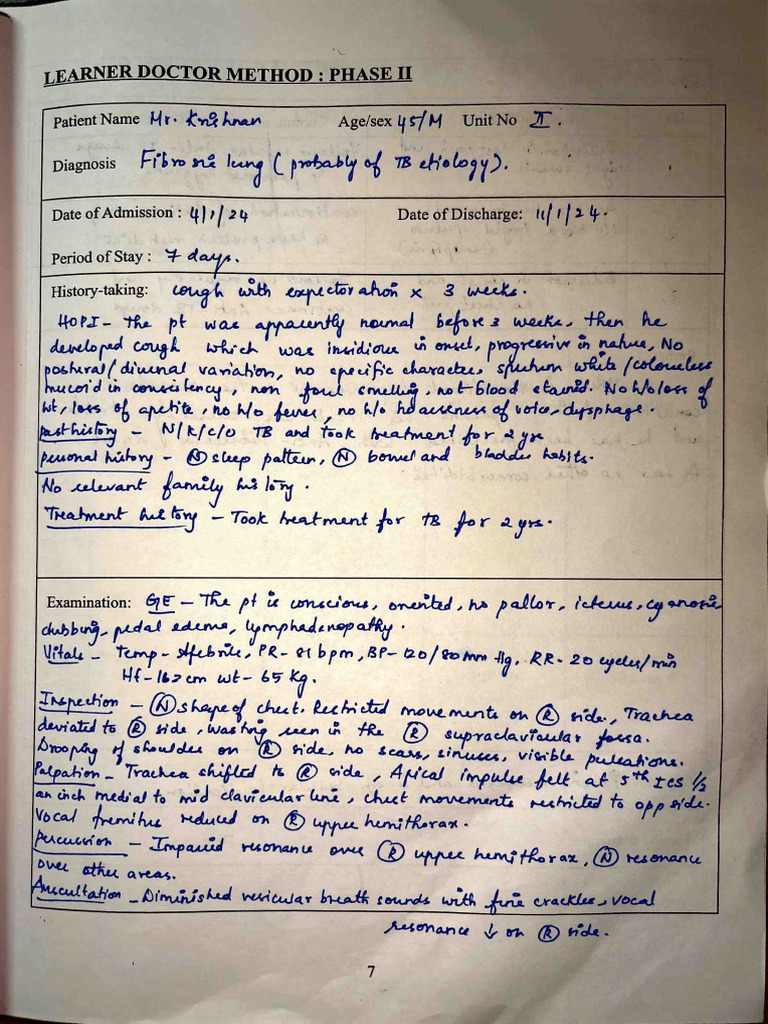 LEARNER DOCTOR METHOD : PHASE II
Patient Name Mr. Krishnan Age/sex 45/M Unit No II.
Diagnosis Fibrosis lung (probably of TB etiology).
Date of Admission : 4/1/24 Date of Discharge: 11/1/24.
Period of Stay : 7 days.
History-taking: cough with expectoration x 3 weeks.
HOPI - The pt was apparently normal before 3 weeks, then he
developed cough which was insidious in onset, progressive in nature, No
postural/diurnal variation, no specific character, sputum white/colourless
mucoid in consistency, non foul smelling, not blood stained. No h/o loss of
wt, loss of apetite, no h/o fever, no h/o hoarseness of voice, dysphage.
Past history - N/K/C/O TB and took treatment for 2 yrs
Personal history - Ⓝ sleep pattern, Ⓝ bowel and bladder habits.
No relevant family history.
Treatment history - Took treatment for TB for 2 yrs.
Examination: G/E - The pt is conscious, oriented, no pallor, icterus, cyanosis,
clubbing, pedal edema, lymphadenopathy.
Vitals - Temp - Afebrile, PR - 81 bpm, BP - 120/80 mm Hg. RR - 20 cycles/min
Ht - 162 cm wt - 65 Kg.
Inspection - Ⓝ shape of chest. Restricted movements on Ⓡ side, Trachea
deviated to Ⓡ side, wasting seen in the Ⓡ supraclavicular fossa.
Drooping of shoulder on Ⓡ side, no scars, sinuses, visible pulsations.
Palpation - Trachea shifted to Ⓡ side, Apical impulse felt at 5th ICS 1/2
an inch medial to mid clavicular line, chest movements restricted to opp side.
Vocal fremitus reduced on Ⓡ upper hemithorax.
Percussion - Impaired resonance over Ⓡ upper hemithorax, Ⓝ resonance
over other areas.
Auscultation - Diminished vesicular breath sounds with fine crackles, vocal
resonance ↓ on Ⓡ side.
7